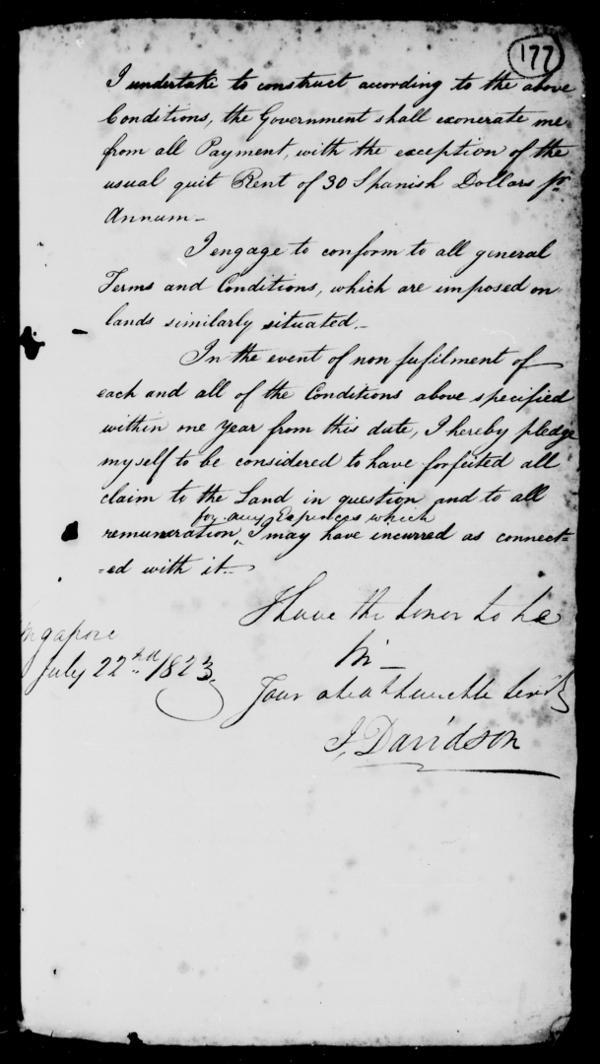 177
I undertake to construct according to the above
Conditions, the Government shall exonerate me
from all Payment, with the exception of the
usual quit Rent of 30 Spanish Dollars pr
Annum _
I engage to conform to all general
Terms and Conditions, which are imposed on
lands similarly situated. _
In the event of non fufilment of
each and all of the Conditions above specified
within one year from this date, I hereby pledge
myself to be considered to have forfeited all
claim to the Land in question and to all
for any Expences which
remuneration, I may have incurred as connect=
=ed with it. _
I have the honor to be
Sir _
Your obedt humble Servt
ngapore
July 22nd 1823.
J, Davidson